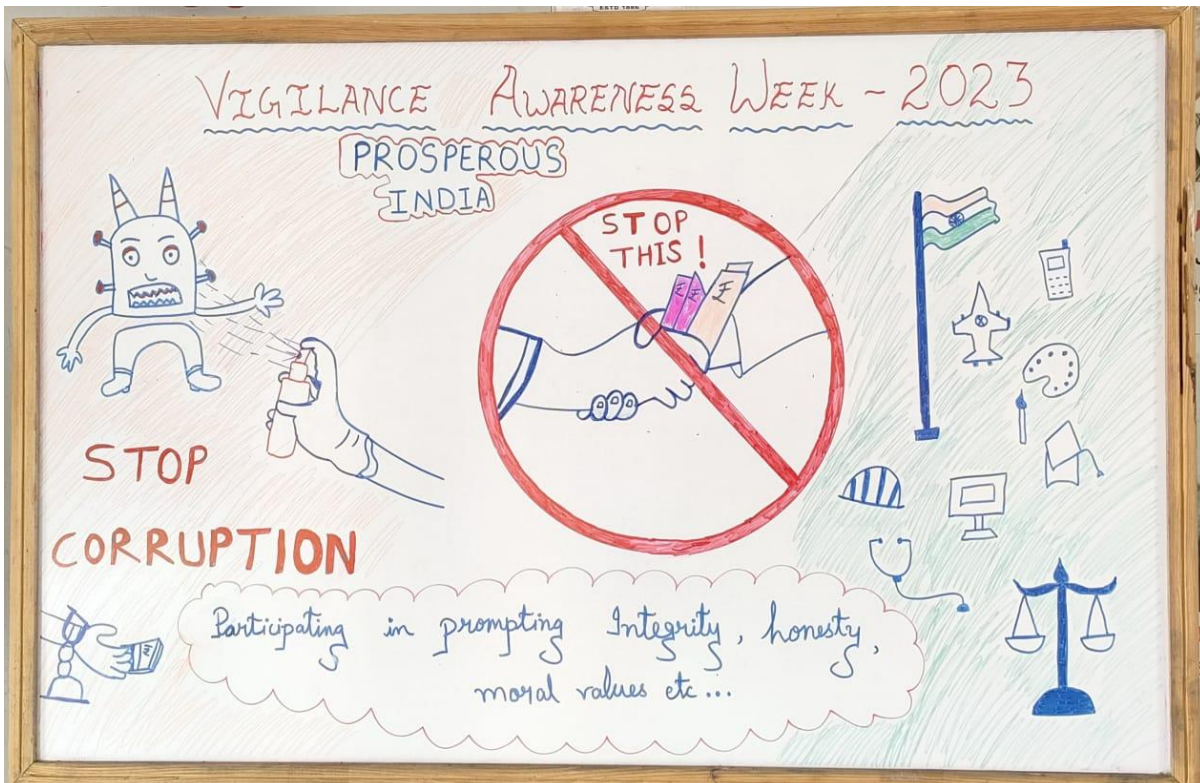 ESTD 1886
VIGILANCE AWARENESS WEEK - 2023
PROSPEROUS
INDIA
STOP
THIS !
₹ ₹ ₹
STOP
CORRUPTION
Participating in prompting Integrity, honesty,
moral values etc...